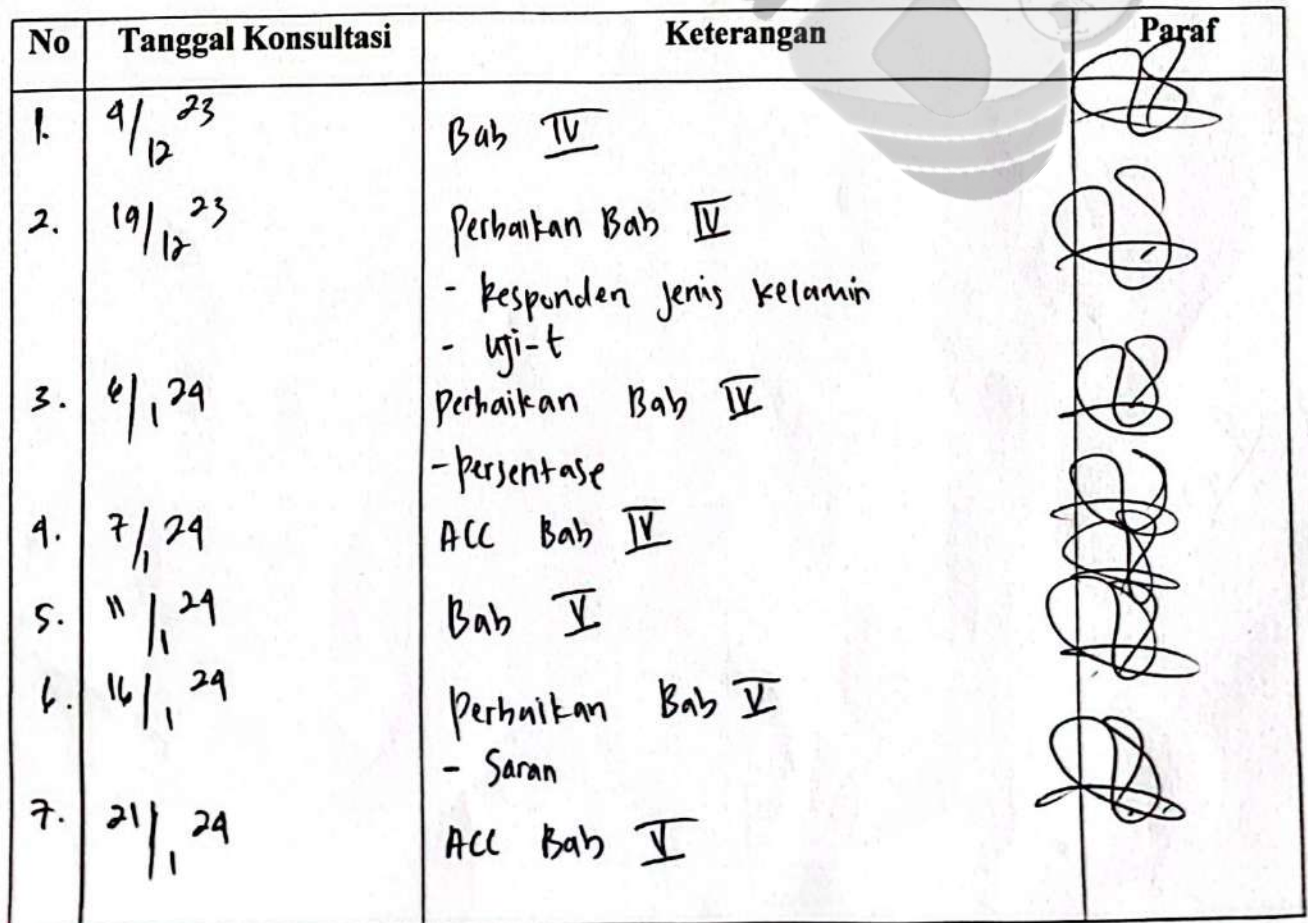 No Tanggal Konsultasi Keterangan Paraf
1. 4/12 23 Bab IV
2. 19/12 23 Perbaikan Bab IV
- Responden jenis kelamin
- uji-t
3. 6/1 24 Perbaikan Bab IV
- persentase
4. 7/1 24 ACC Bab IV
5. 11/1 24 Bab V
6. 16/1 24 Perbaikan Bab V
- Saran
7. 21/1 24 ACC Bab V